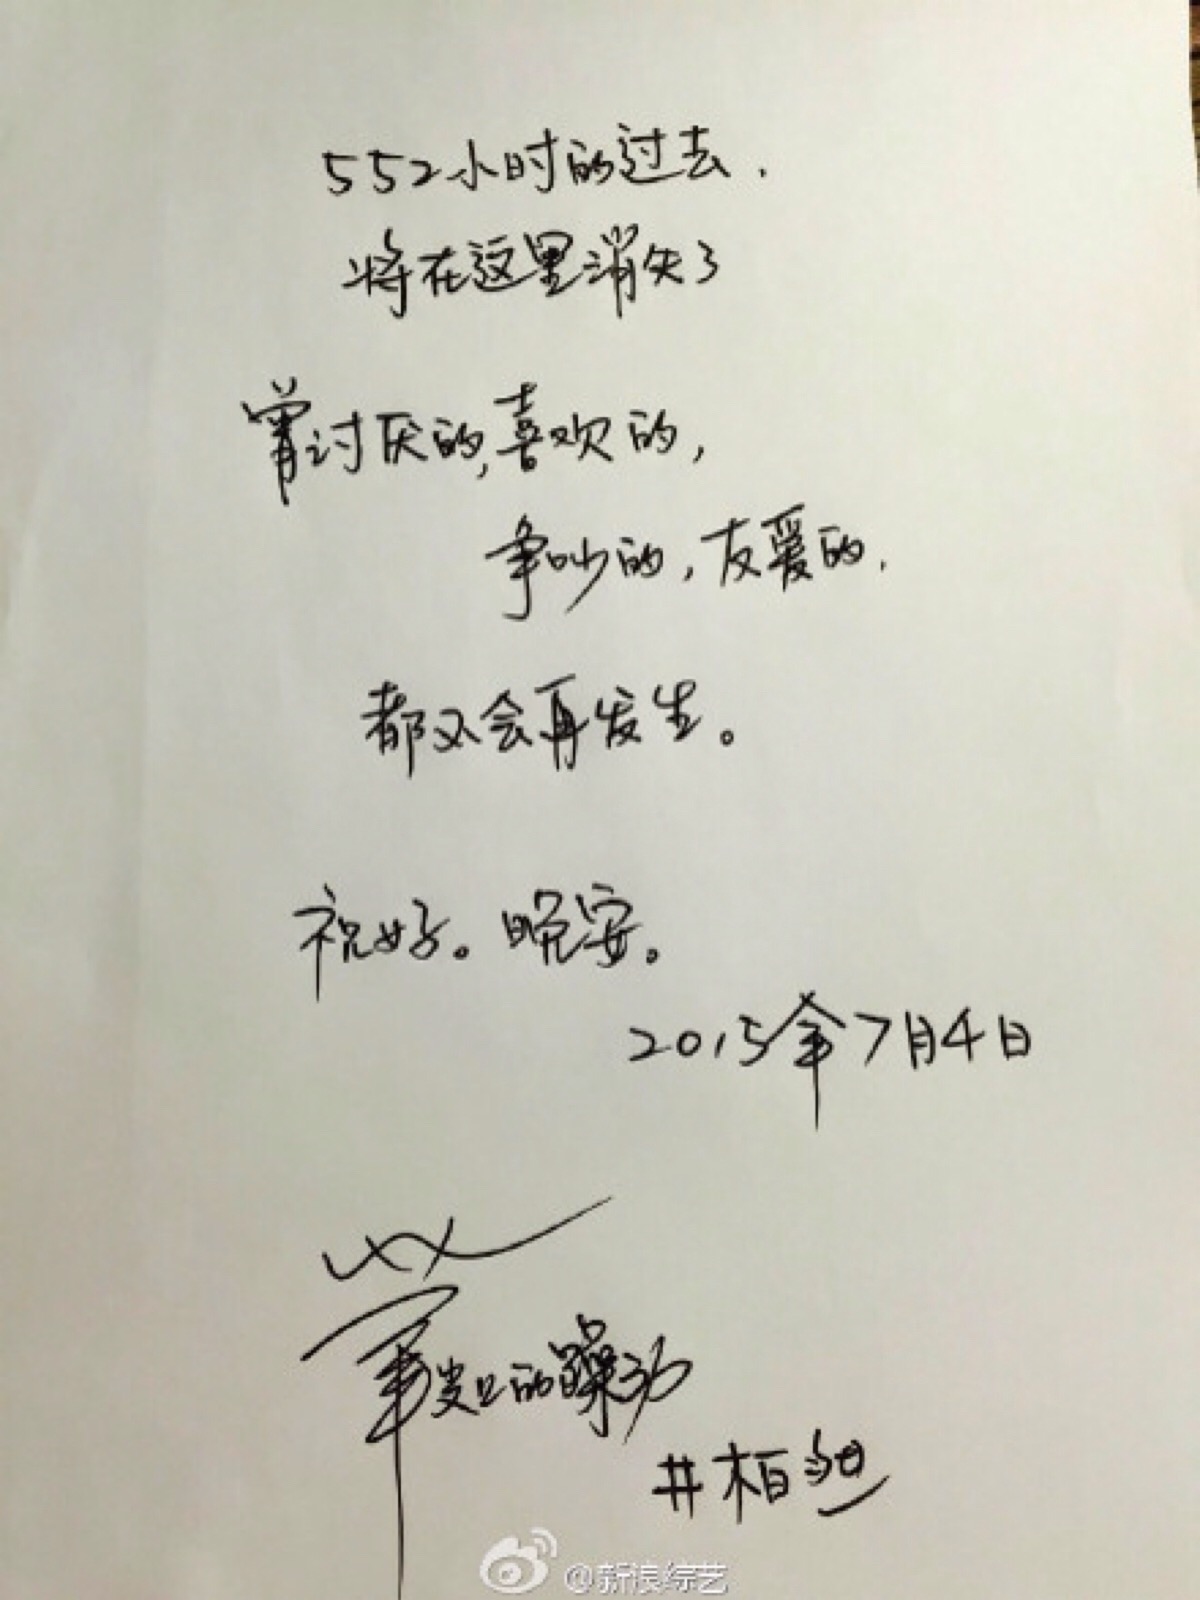 552小时的过去.
将在这里消失了
曾讨厌的,喜欢的,
争吵的,友爱的.
都不会再发生。
祝好。晚安。
2015年7月4日
的躁动
井柏然
@新浪综艺